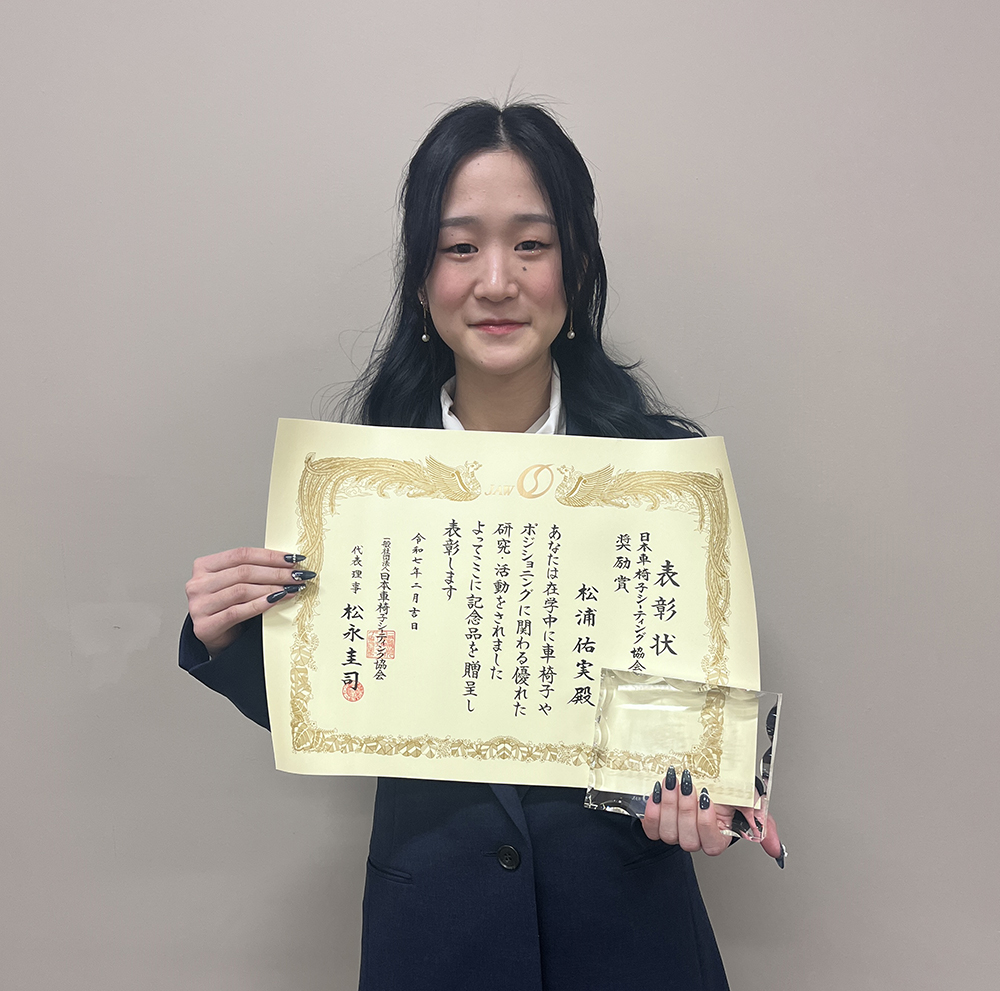 表彰状
日本車椅子シーティング協会
奨励賞
松浦佑実殿
あなたは在学中に車椅子や
ポジショニングに関わる優れた
研究・活動をされました
よってここに記念品を贈呈し
表彰します
令和七年二月吉日
一般社団法人日本車椅子シーティング協会
代表理事 松永圭司